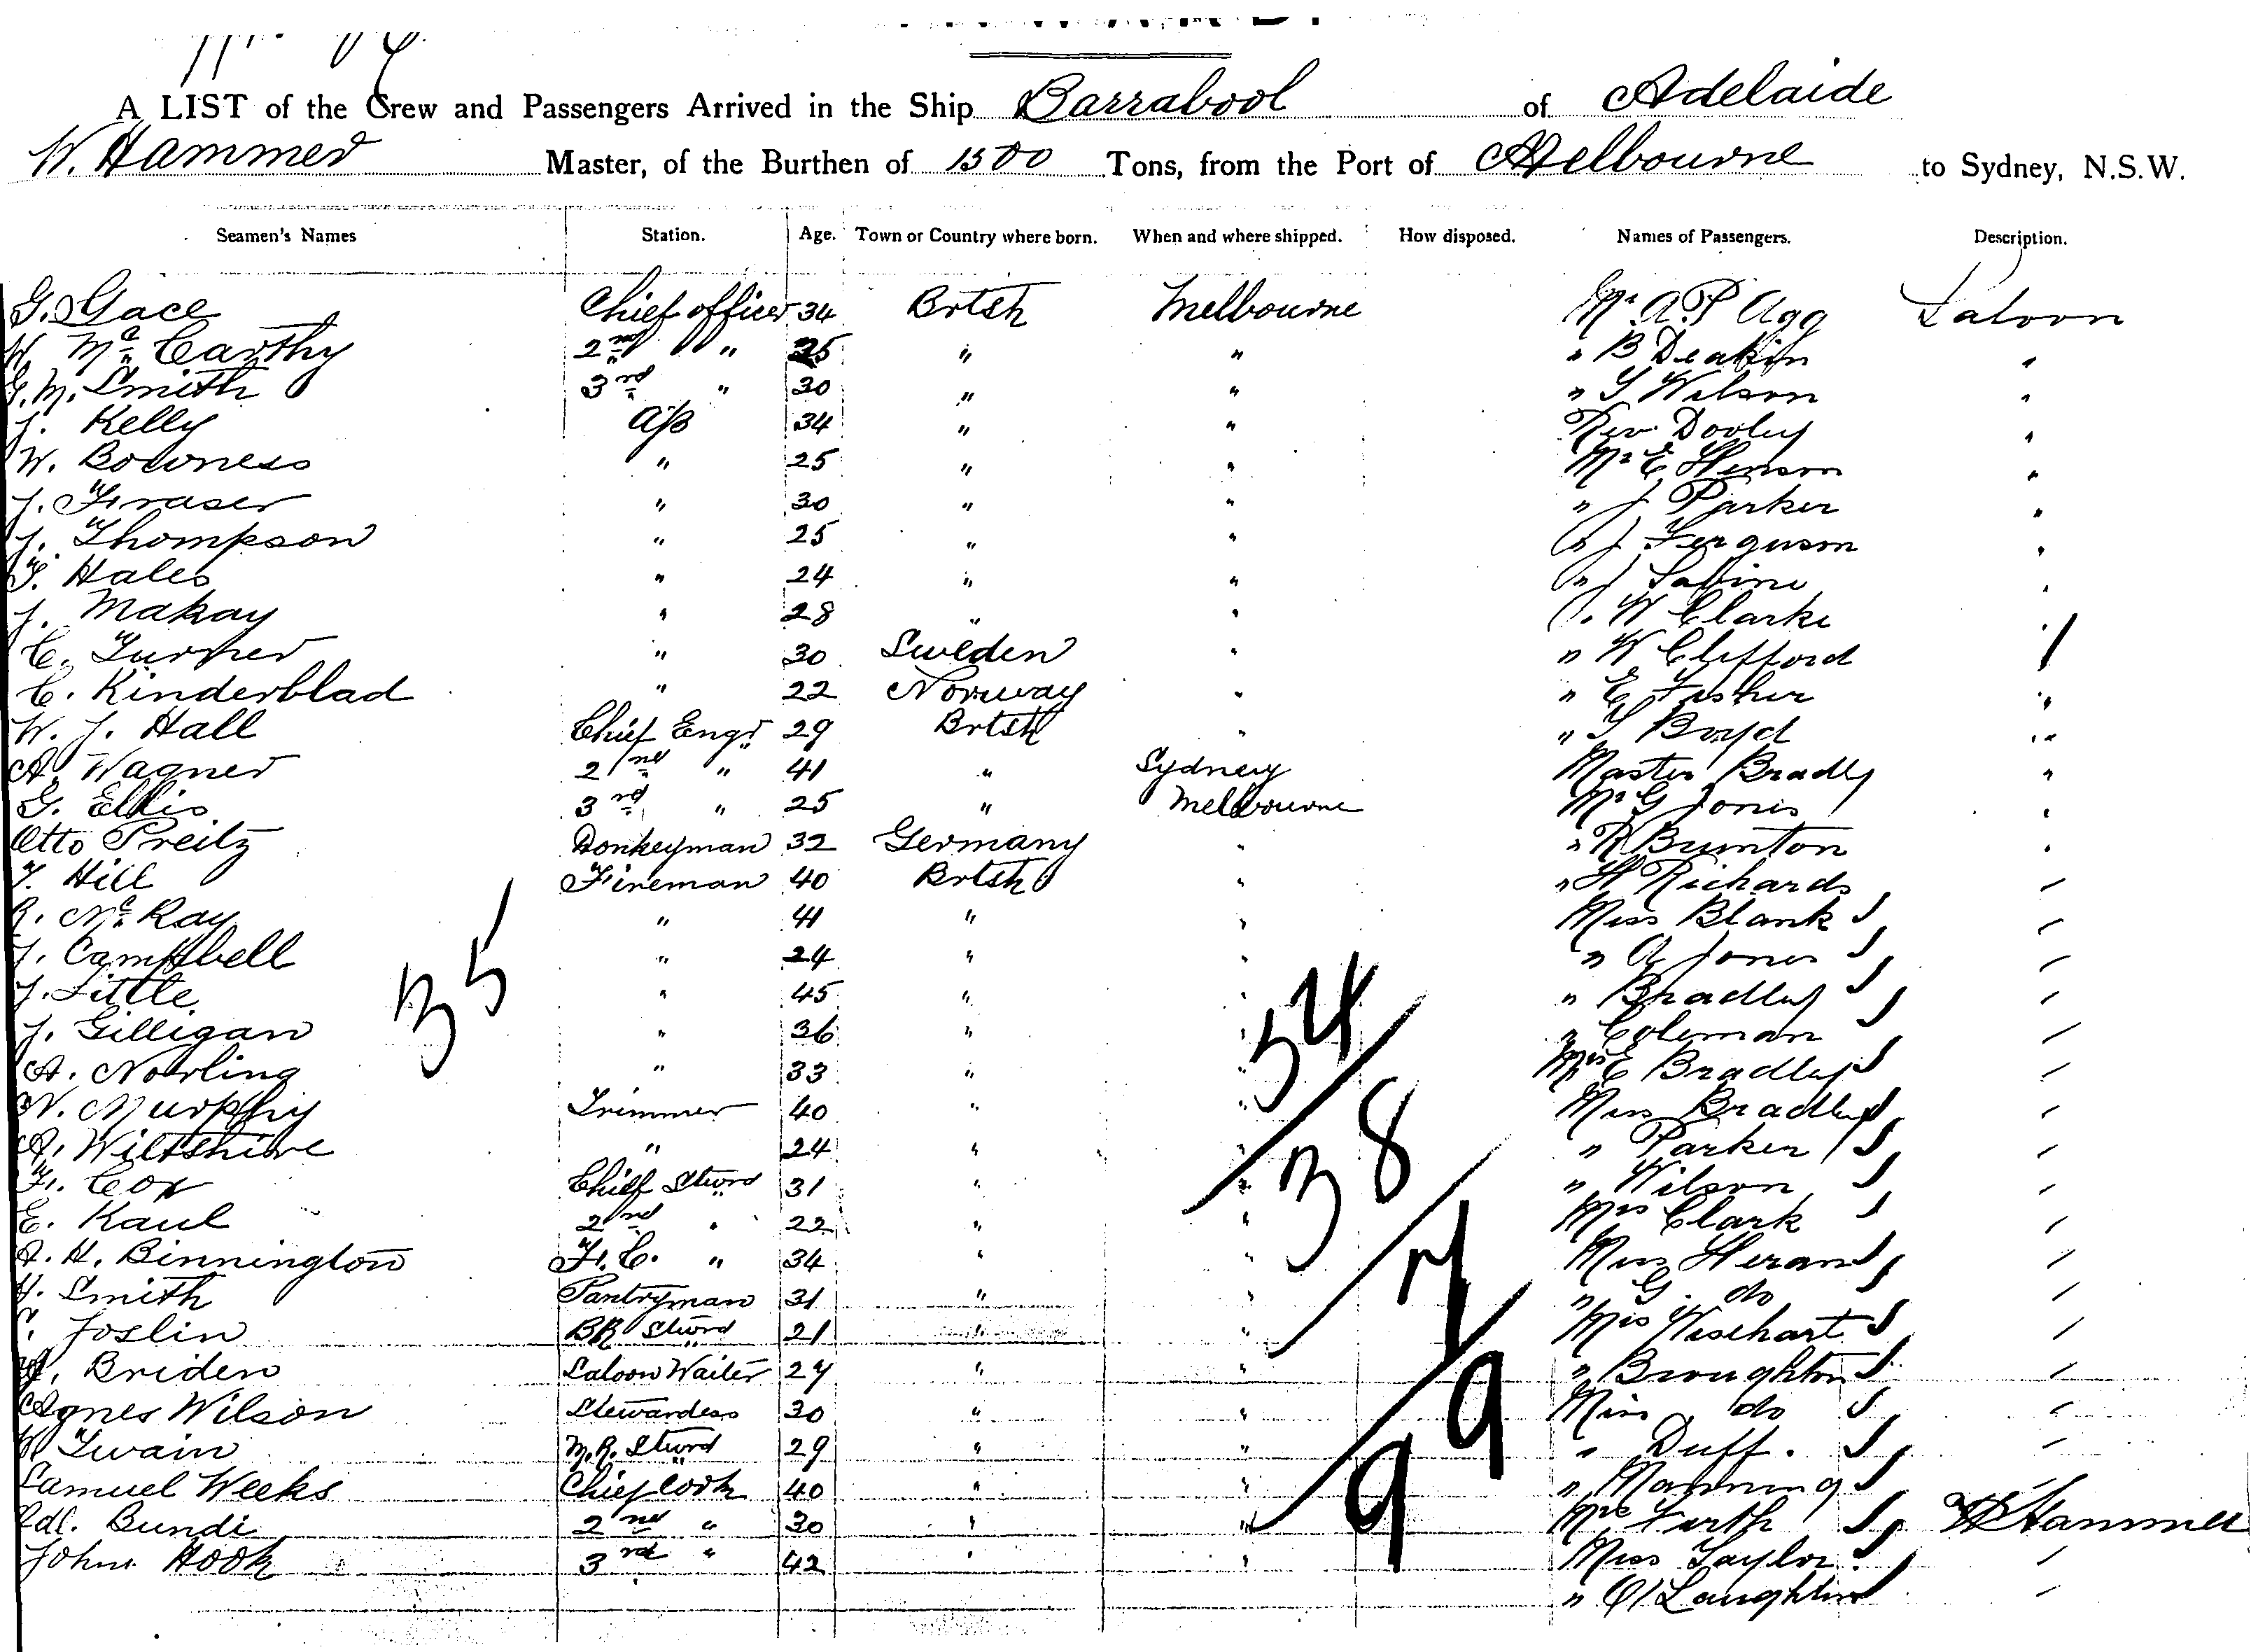 A LIST of the Crew and Passengers Arrived in the Ship Barrabool of Adelaide
W. Hammer Master, of the Burthen of 1500 Tons, from the Port of Melbourne to Sydney, N.S.W.
Seamen's Names Station. Age. Town or Country where born. When and where shipped. How disposed. Names of Passengers. Description.
G. Gace Chief officer 34 Brtsh Melbourne Mr A. P Agg Saloon
W. Mc Carthy 2nd " 25 " " " B Deakin "
G. M. Smith 3rd " 30 " " " S Wilson "
J. Kelly A/B 34 " " Rev. Dooley "
W. Bowness " 25 " " Mr E Henson "
J. Fraser " 30 " " " J Parker "
J. Thompson " 25 " " " J Ferguson "
T. Hales " 24 " " " J Sabine "
J. Makay " 28 " " " W Clarke "
C. Turner " 30 Sweden " " W Clifford "
C. Kinderblad " 22 Norway " " E Fisher "
W. J. Hall Chief Engr 29 Brtsh " " S Boyd "
A. Wagner 2nd " 41 " Sydney Master Bradly "
G. Ellis 3rd " 25 " Melbourne Mr G Jones "
Otto Preitz Donkeyman 32 Germany " " R Brunton "
T. Hill Fireman 40 Brtsh " " H Richards "
R. Mc Kay " 41 " " Miss Blank "
J. Campbell " 24 " " " A Jones "
J. Little " 45 " " " Bradley "
J. Gilligan " 36 " " " Coleman "
A. Norling " 33 " " Mrs E Bradley "
W. Murphy Trimmer 40 " " Miss Bradley "
A. Wiltshire " 24 " " " Parker "
F. Cox Chief Stwrd 31 " " " Wilson "
E. Kaul 2nd " 22 " " Mrs Clark "
A. H. Binnington F. C. " 34 " " Miss Heran "
H. Smith Pantryman 31 " " " G. do "
Joslin BR Stwrd 21 " " Mrs Wisehart "
Briden Saloon Waiter 27 " " " Broughton "
Agnes Wilson Stewardess 30 " " Miss do "
W Twain M.R. Stwrd 29 " " " Duff. "
Samuel Weeks Chief Cook 40 " " " Manning "
Rdl. Bundi 2nd " 30 " " Mrs Furth W Hammer
John Hook 3rd " 42 " " Miss Taylor "
" O'Laughlin "
35
34
38
7
99